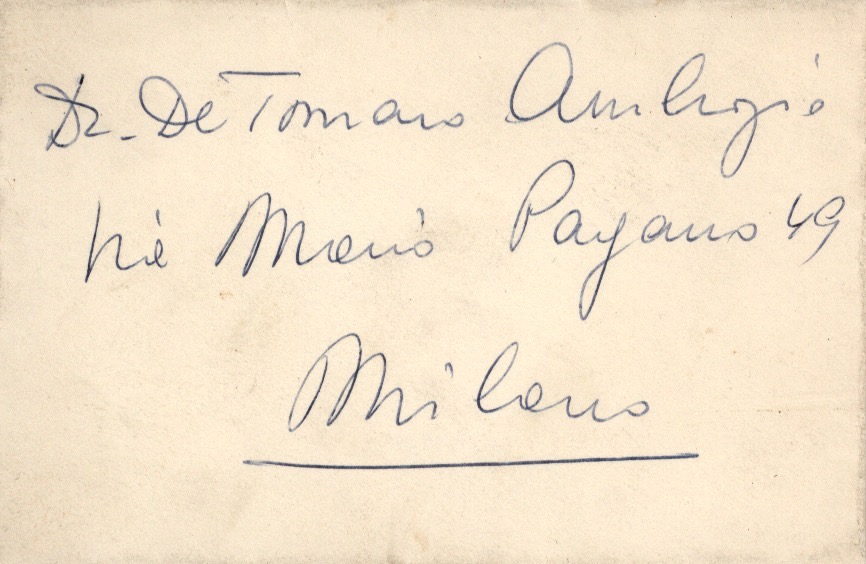 Dr. De Tomaso Ambrogio
Via Mario Pagano 49
Milano